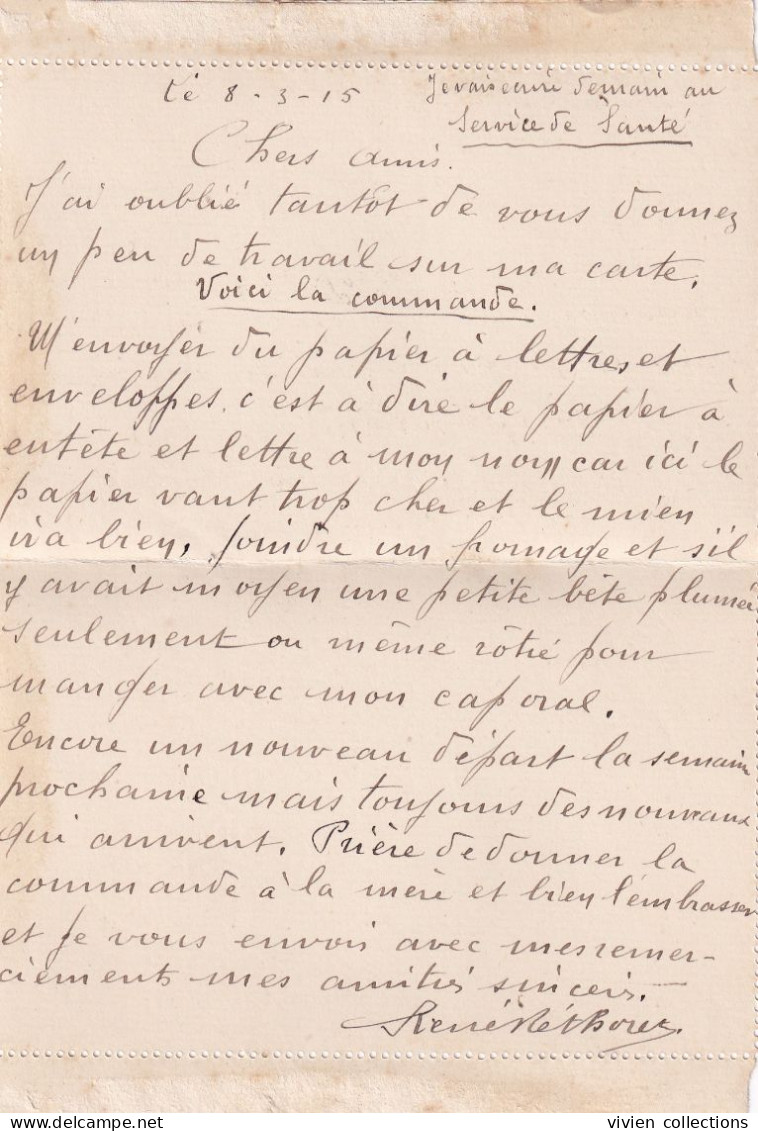 Le 8-3-15
Je vais écrire demain au
Service de Santé
Chers amis.
J'ai oublié tantôt de vous donnez
un peu de travail sur ma carte.
Voici la commande.
M'envoyer du papier à lettres et
enveloppes. c'est à dire le papier à
entête et lettre à mon nom car ici le
papier vaut trop cher et le mien
ira bien, joindre un fromage et s'il
y avait moyen une petite bête plumée
seulement ou même rôtie pour
manger avec mon caporal.
Encore un nouveau départ la semaine
prochaine mais toujours des nouveaux
qui arrivent. Prière de donner la
commande à la mère et bien l'embrasser
et je vous envois avec mes remer-
ciements mes amitiés sincères.
René
vivien collections